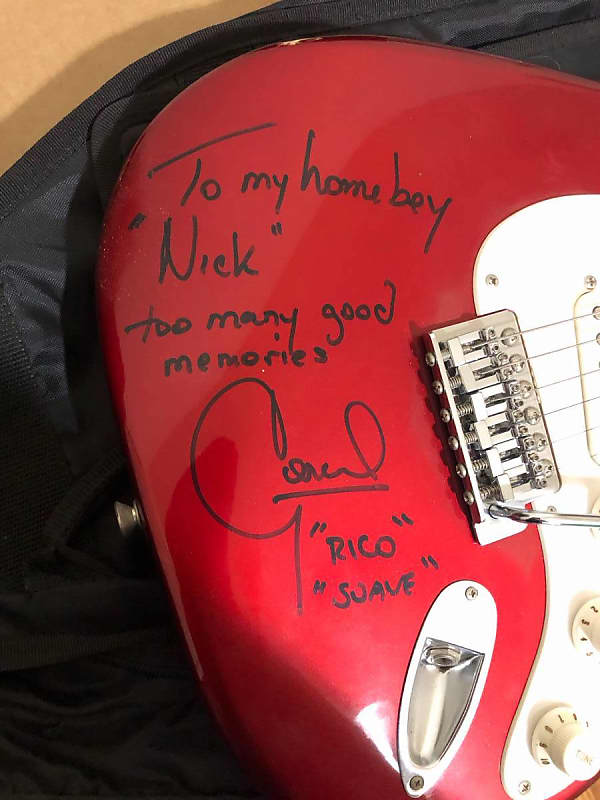 To my homeboy
"Nick"
too many good
memories
"RICO"
"SUAVE"